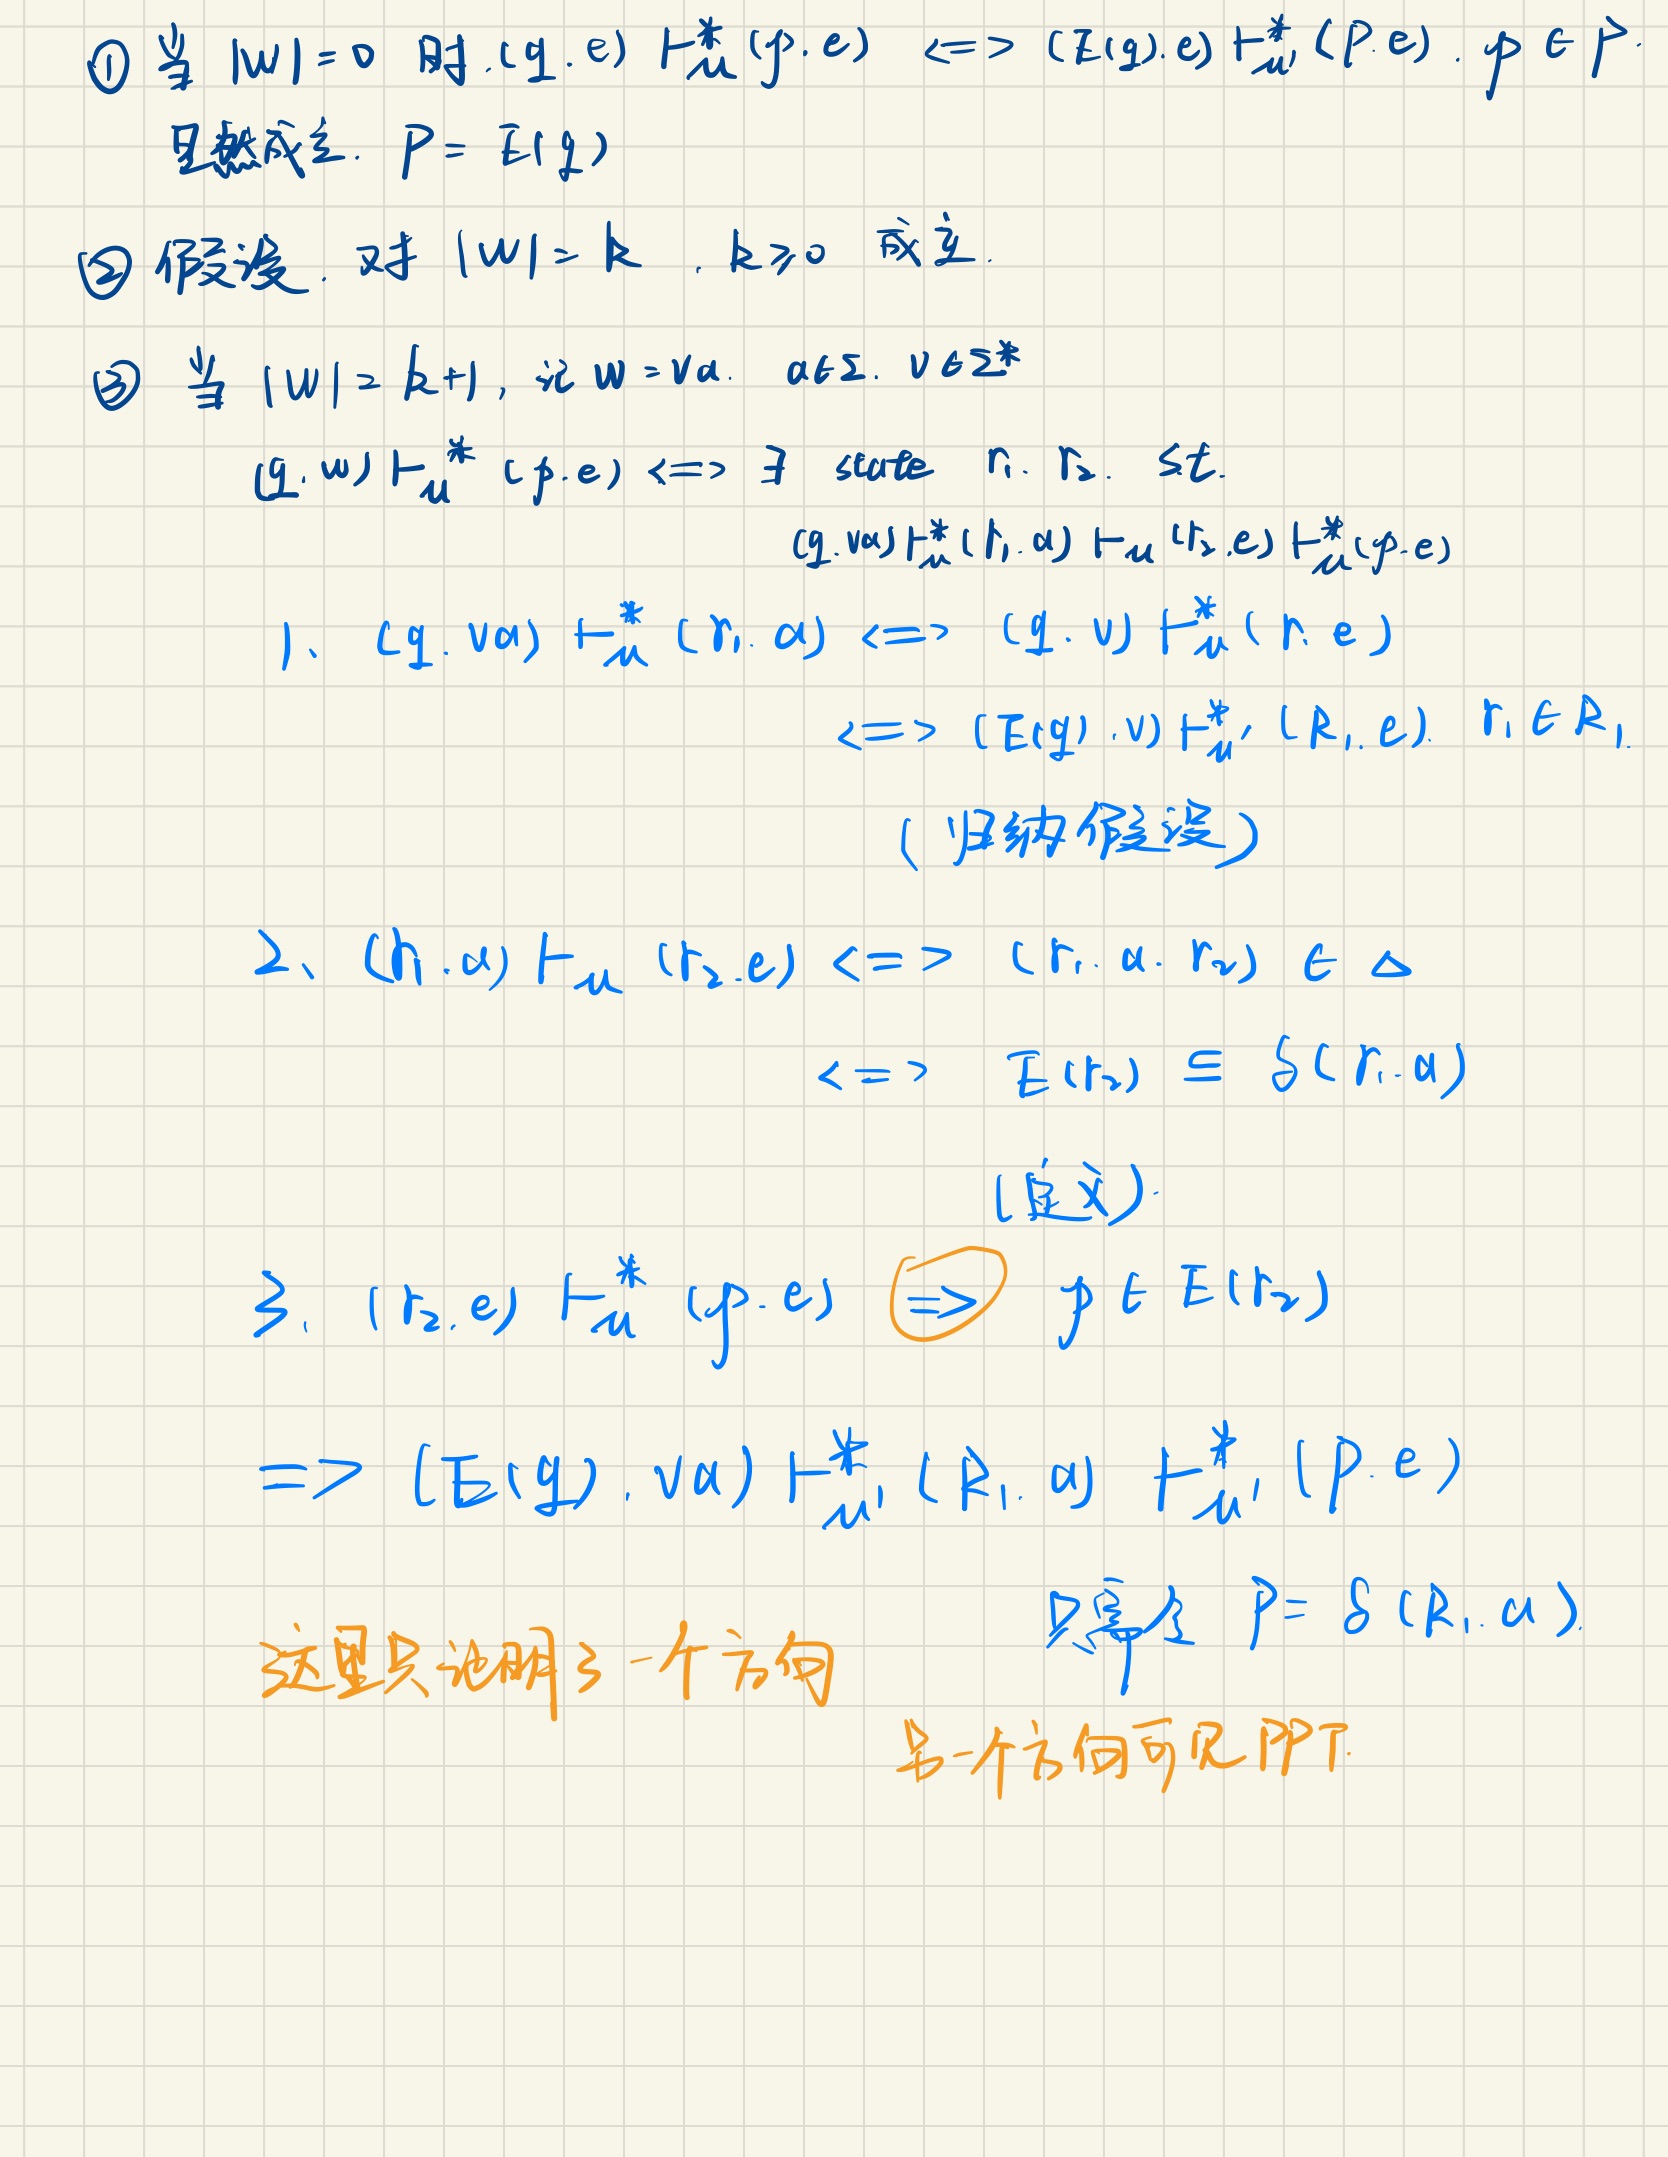 ① 当 |w|=0 时.(q.e) ⊢*_M (p.e) <=> (E(q).e) ⊢*_M' (P.e). p ∈ P.
显然成立. P = E(q)
② 假设. 对 |w|= k . k≥0 成立.
③ 当 |w|= k+1, 记 w = va. a∈Σ. v∈Σ*
(q.w) ⊢*_M (p.e) <=> ∃ state r₁. r₂. st.
(q.va) ⊢*_M (r₁.a) ⊢_M (r₂.e) ⊢*_M (p.e)
1、 (q.va) ⊢*_M (r₁.a) <=> (q.v) ⊢*_M (r₁.e)
<=> (E(q).v) ⊢*_M' (R₁.e). r₁∈R₁.
(归纳假设)
2、 (r₁.a) ⊢_M (r₂.e) <=> (r₁.a.r₂) ∈ Δ
<=> E(r₂) ⊆ δ(r₁.a)
(定义).
3. (r₂.e) ⊢*_M (p.e) => p ∈ E(r₂)
=> (E(q).va) ⊢*_M' (R₁.a) ⊢*_M' (P.e)
只需令 P = δ(R₁.a).
这里只说明了一个方向
另一个方向可见PPT.